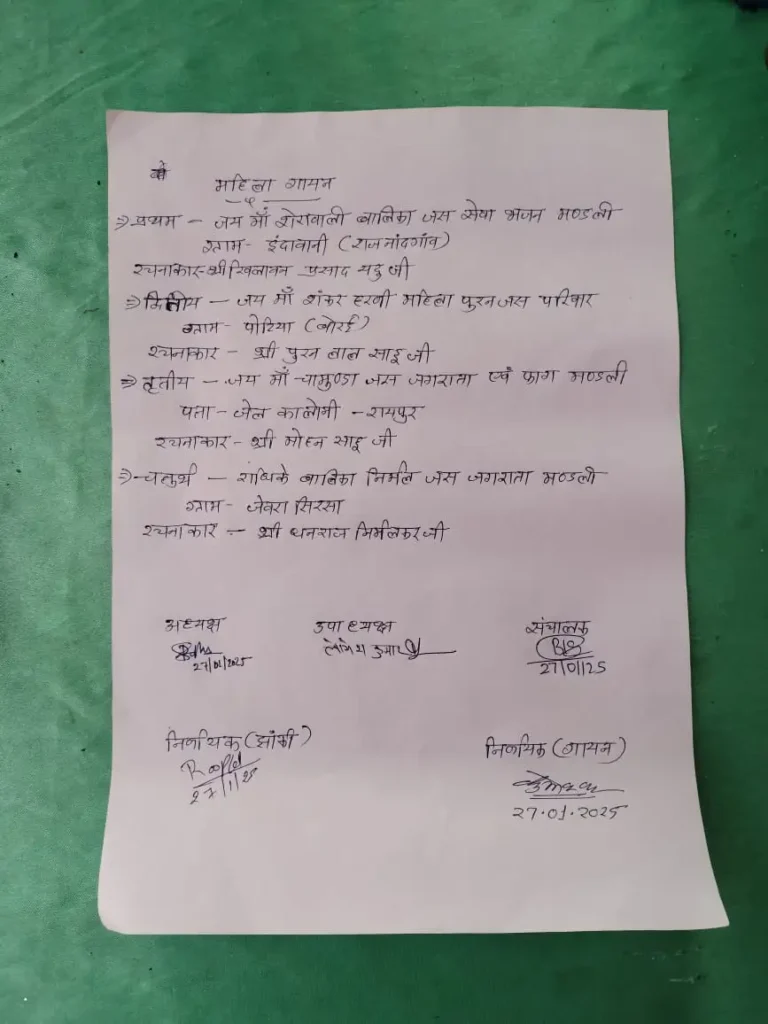 महिला गायन
⇒ प्रथम – जय माँ शेरावाली बालिका जस सेवा भजन मण्डली
ग्राम- इंदावानी (राजनांदगांव)
रचनाकार- श्री खिलावन प्रसाद यदु जी
⇒ द्वितीय – जय माँ शंकर हरवी महिला पुरन जस परिवार
ग्राम- पोटिया (बोरई)
रचनाकार - श्री पुरन लाल साहू जी
⇒ तृतीय – जय माँ चामुण्डा जस जगराता एवं फाग मण्डली
पता - जेल कालोनी - रायपुर
रचनाकार - श्री मोहन साहू जी
⇒ चतुर्थ – राधिके बालिका निर्मल जस जगराता मण्डली
ग्राम- जेवरा सिरसा
रचनाकार – श्री धनराज निर्मलकर जी
अध्यक्ष उपाध्यक्ष संचालक
27/01/2025 कुमार 27/01/25
निर्णायक (झांकी) निर्णायक (गायन)
27/1/25 27.01.2025